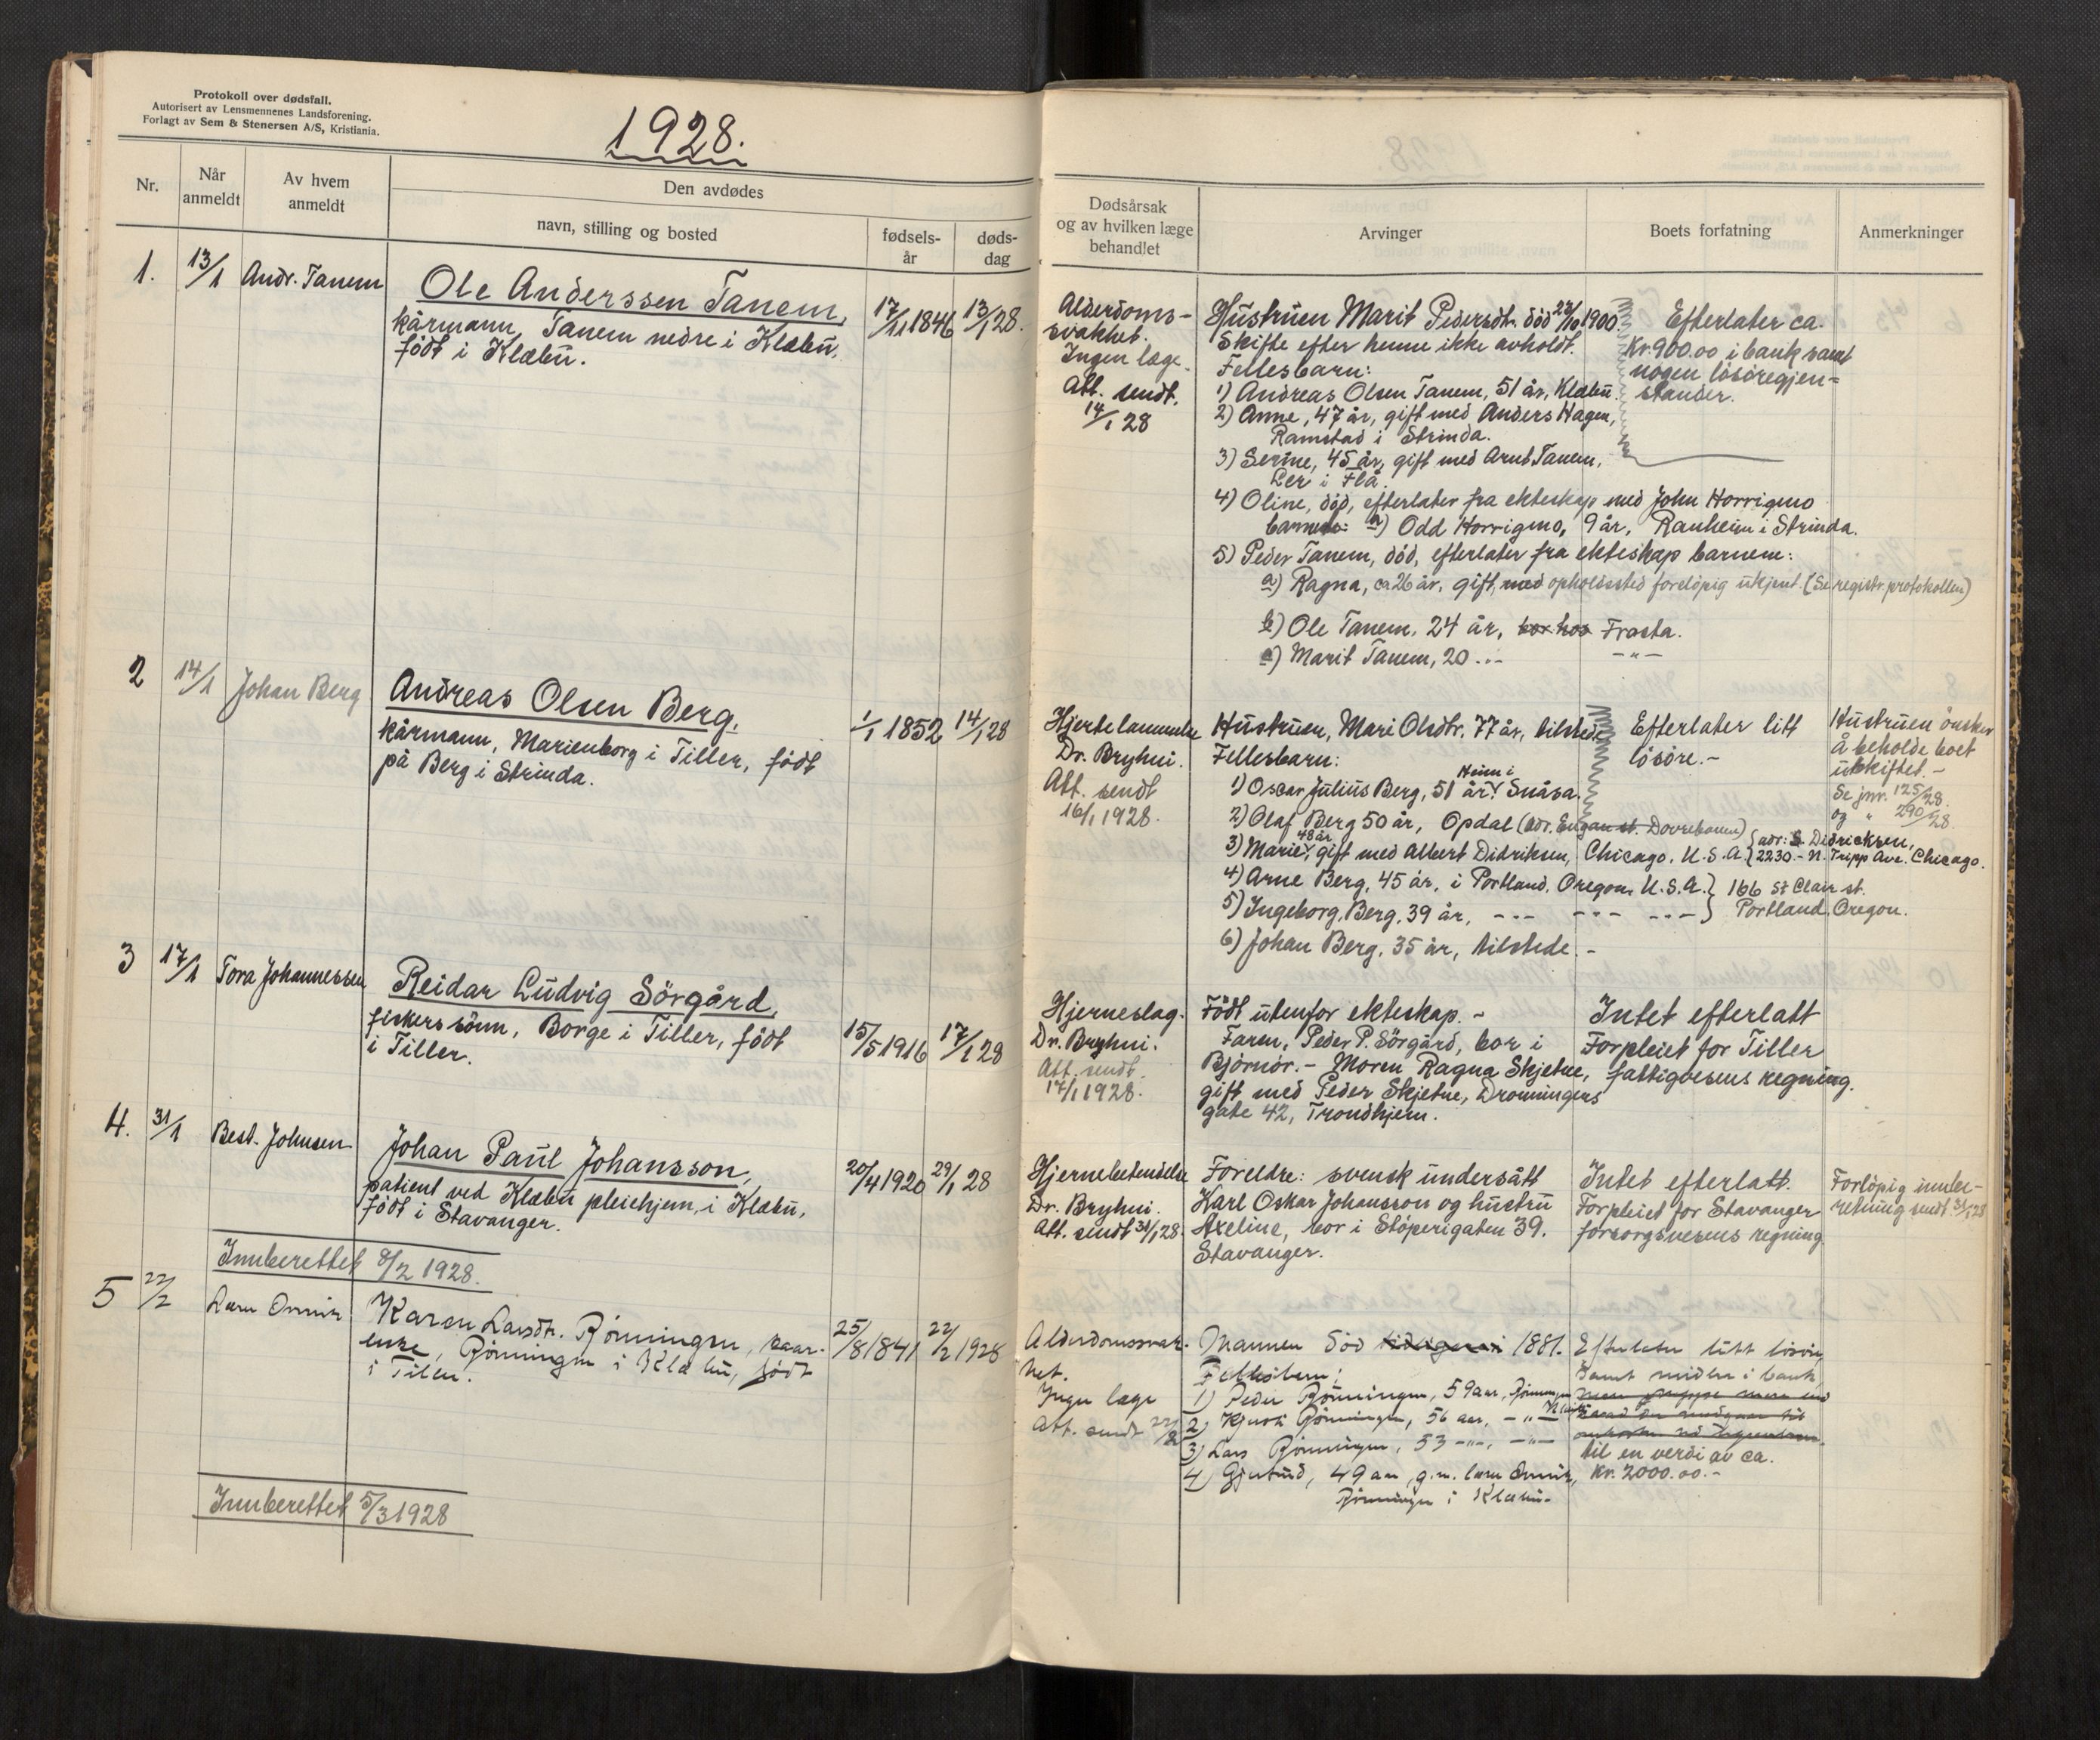 Protokoll over dødsfall.
Autorisert av Lensmennenes Landsforening.
Forlagt av Sem & Stenersen A/S, Kristiania.
1928.
Nr.
Når anmeldt
Av hvem anmeldt
Den avdødes
navn, stilling og bosted
fødsels-
år
døds-
dag
1. 13/1 Andr. Tanem
Ole Anderssen Tanem,
kårmann, Tanem nedre i Klæbu,
født i Klæbu.
17/11 1846 13/1 28.
2 14/1 Johan Berg
Andreas Olsen Berg,
kårmann, Marienborg i Tiller, født
på Berg i Strinda.
1/1 1852 14/1 28
3 17/1 Tora Johannessen
Reidar Ludvig Sörgård,
fiskers sönn, Borge i Tiller, född
i Tiller.
15/5 1916 17/1 28
4. 31/1 Best. Johnsen
Johan Paul Johansson,
patient ved Klæbu pleiehjem, i Klæbu,
född i Stavanger.
20/4 1920 29/1 28
Innberettet 8/2 1928.
5 22/2 Lars
Karen Larsdtr. Rønningen, kaar-
enke, Rønningen i Klæbu, født
i Tiller.
25/8 1841 22/2 1928
Innberettet 5/3 1928
Dødsårsak
og av hvilken læge
behandlet
Arvinger
Boets forfatning
Anmerkninger
Alderdoms-
svakhet.
Ingen læge.
Att. sendt.
14/1 28
Hustruen Marit Pedersdtr. död 23/10 1900.
Skifte efter henne ikke avholdt.
Fellesbarn:
1) Andreas Olsen Tanem, 51 år, Klæbu.
2) Anne, 47 år, gift med Anders Hagen,
Ramstad i Strinda.
3) Serine, 45 år, gift med Arnt Tanem,
Ler i Flå.
4) Oline, död, efterlater fra ekteskap med John Horrigmo
barnet: a) Odd Horrigmo, 9 år, Ranheim i Strinda.
5) Peder Tanem, död, efterlater fra ekteskap barnene:
a) Ragna, ca 26 år, gift, med opholdssted forelöpig ukjent (Se registr. protokollen)
b) Ole Tanem, 24 år, bor hos Frosta.
c) Marit Tanem, 20 -"- -"-
Efterlater ca.
Kr. 900.00 i bank samt
nogen lösöregjen-
stander.
Hjertelammelse
Dr. Bryhni.
Att. sendt
16/1 1928.
Hustruen, Mari Olsdtr. 77 år, tilstede.
Fellesbarn:
1) Oscar Julius Berg, 51 år, Heim i Snåsa.
2) Olaf Berg 50 år, Opdal (adr. Engan st. Dovrebanen)
3) Marie, 48 år, gift med Albert Didriksen, Chicago. U.S.A. } adr: S. Didricksen,
2230.- N. Tripp Ave. Chicago.
4) Arne Berg, 45 år, i Portland. Oregon. U.S.A. } 166 St Clair st.
5) Ingeborg Berg, 39 år, -"- -"- -"- } Portland. Oregon.
6) Johan Berg, 35 år, tilstede.-
Efterlater litt
lösöre.-
Hustruen önsker
å beholde boet
uskiftet.-
Se jnr. 125/28.
og " 290/28.
Hjerneslag.
Dr. Bryhni.
Att. sendt.
17/1 1928.
Född utenfor ekteskap.-
Faren, Peder P. Sörgård, bor i
Björnör.- Moren Ragna Skjetne,
gift med Peder Skjetne, Dronningens
gate 42, Trondhjem.
Intet efterlatt
Forpleiet for Tiller
fattigvesens regning.
Hjernebetendelse
Dr. Bryhni.
Att. sendt 31/1 28.
Foreldre: svensk undersått
Karl Oskar Johansson og hustru
Axeline, bor i Stöperigaten 39.
Stavanger.
Intet efterlatt.
Forpleiet for Stavanger
forsorgsvesens regning
Forlöpig innbe-
retning sendt 31/1 28
Alderdomssvak-
het.
Ingen læge
Att. sendt 22/2
Mannen död tidligere i 1881.
Fellesbarn:
1) Peder Rønningen, 59 aar, Rønningen
Klæbu
2) Rønningen, 56 aar, -"-
3) Lars Rønningen, 53 -"-, -"-
4) Gjertrud, 49 aar, g.m. Lars
Rønningen i Klæbu-
Efterlater litt lösöre,
samt midler i bank,
til en verdi av ca.
kr. 2000.00.-